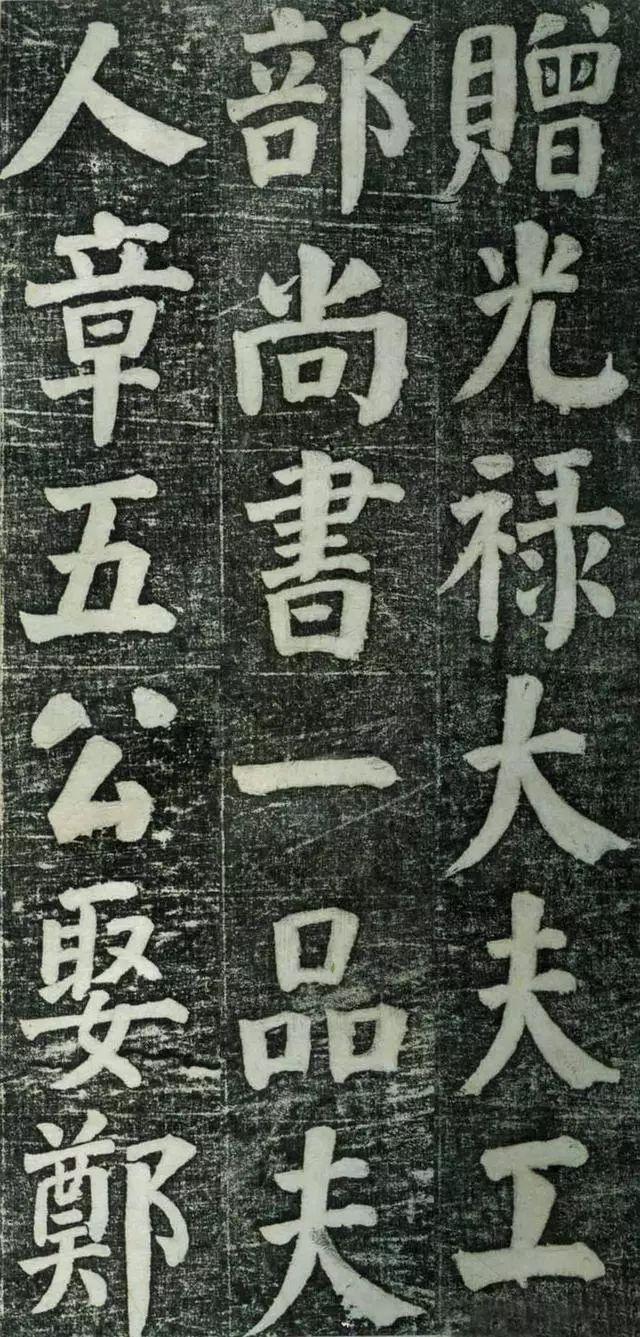 贈光禄大夫工
部尚書一品夫
人章五公娶鄭